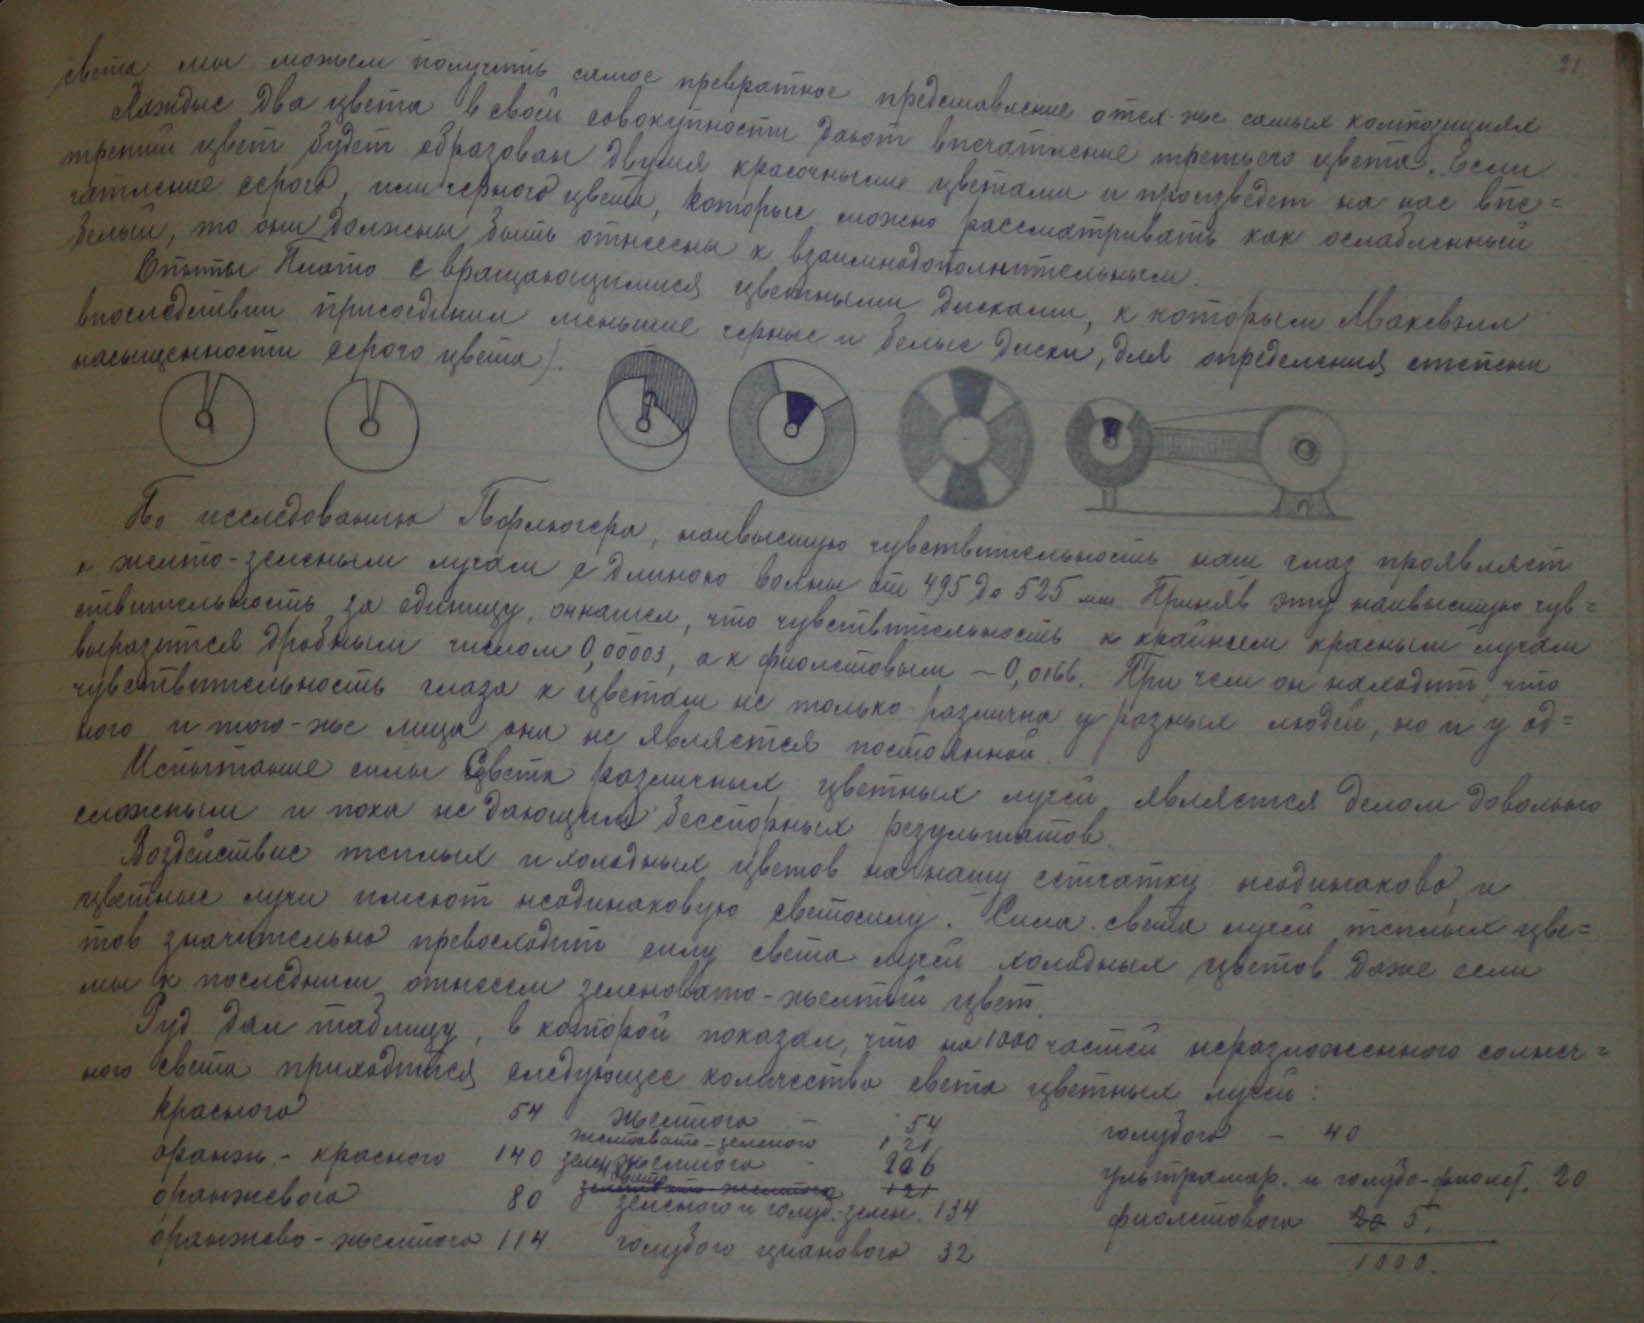 21
света мы можем получить самое превратное представление о тех-же самых композициях
Каждые два цвета в своей совокупности дают впечатление третьего цвета. Если
третий цвет будет образован двумя красочными цветами и произведет на нас впе=
чатление серого, или черного цвета, которые можно рассматривать как ослабленный
белый, то они должны быть отнесены к взаимнодополнительным.
Опыты Плато с вращающимися цветными дисками, к которым Максвэлл
впоследствии присоединил меньшие черные и белые диски, для определения степени
насыщенности серого цвета).
По исследованию Пфлюгера, наивысшую чувствительность наш глаз проявляет
к желто-зеленым лучам с длиною волны от 495 до 525 мм. Приняв эту наивысшую чув=
ствительность за единицу, он нашел, что чувствительность к крайнем красным лучам
выразится дробным числом 0,00003, а к фиолетовым – 0,0166. При чем он находит, что
чувствительность глаза к цветам не только различна у разных людей, но и у од=
ного и того-же лица она не является постоянной.
Испытание силы света различных цветных лучей является делом довольно
сложным и пока не дающим бесспорных результатов.
Воздействие теплых и холодных цветов на нашу сетчатку неодинаково, и
цветные лучи имеют неодинаковую светосилу. Сила света лучей теплых цве=
тов значительно превосходит силу света лучей холодных цветов даже если
мы к последним отнесем зеленовато-желтый цвет.
Руд дал таблицу, в которой показал, что на 1000 частей неразложенного солнеч=
ного света приходится следующее количество света цветных лучей:
красного 54 желтого – 54 голубого – 40
оранж.- красного 140 желтовато-зеленого 121
зелен. желтого - 206 ультрамар. и голубо-фиолет. 20
оранжевого 80 зеленовато желтого 121
зеленого и голуб.-зелен. 134 фиолетового 20 5.
оранжево-желтого 114 голубого цианового 32 1000.